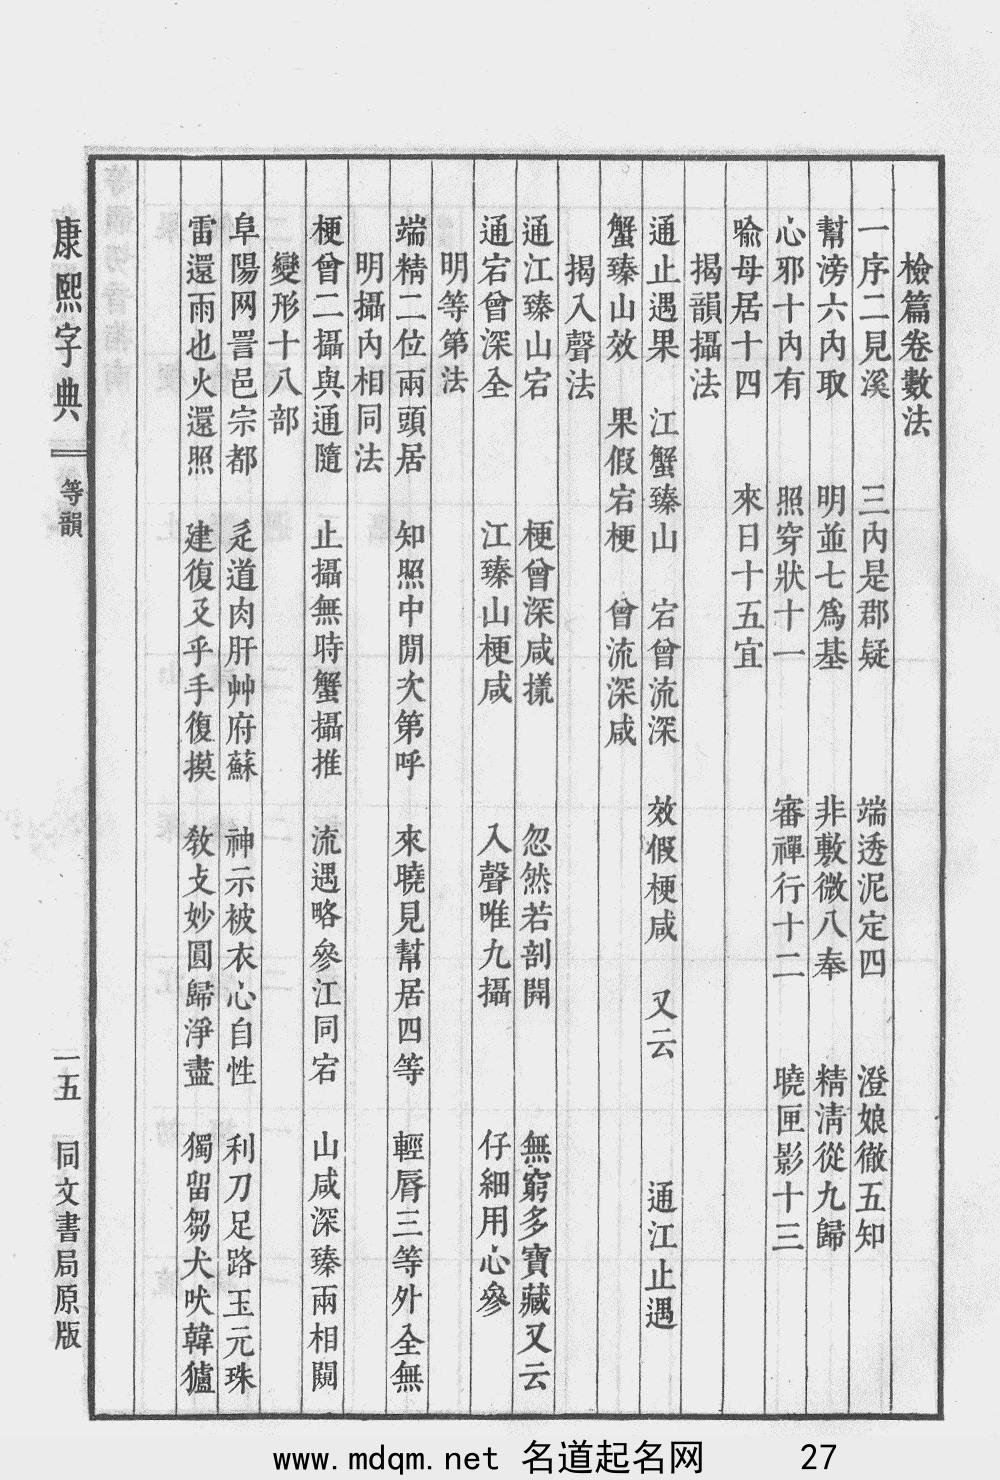 檢篇卷數法
一序二見溪　三內是郡疑　端透泥定四　澄娘徹五知
幫滂六內取　明並七爲基　非敷微八奉　精清從九歸
心邪十內有　照穿狀十一　審禪行十二　曉匣影十三
喻母居十四　來日十五宜
揭韻攝法
通止遇果　江蟹臻山　宕曾流深　效假梗咸　又云　通江止遇
蟹臻山效　果假宕梗　曾流深咸
揭入聲法
通江臻山宕　梗曾深咸㨪　忽然若剖開　無窮多寶藏又云
通宕曾深全　江臻山梗咸　入聲唯九攝　仔細用心參
明等第法
端精二位兩頭居　知照中閒次第呼　來曉見幫居四等　輕脣三等外全無
明攝內相同法
梗曾二攝與通隨　止攝無時蟹攝推　流遇略參江同宕　山咸深臻兩相關
變形十八部
阜陽网詈邑宗都　辵道肉肝艸府蘇　神示被衣心自性　利刀足路玉元珠
雷還雨也火還照　建復廴乎手復摸　敎攴妙圓歸淨盡　獨留芻犬吠韓獹
康熙字典　等韻　一五　同文書局原版
www.mdqm.net 名道起名网　27